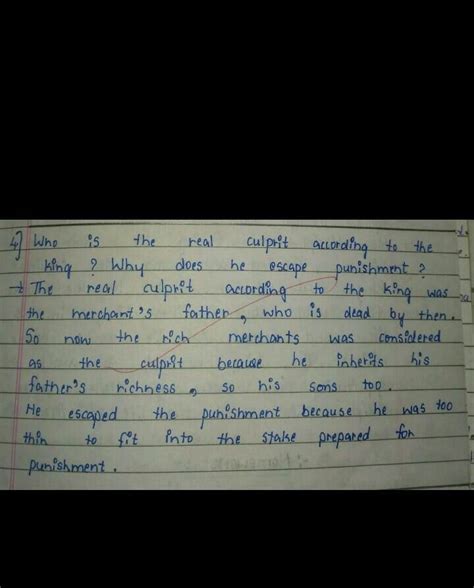 4] Who is the real culprit according to the
king ? Why does he escape punishment ?
→ The real culprit according to the king was
the merchant's father, who is dead by then.
So now the rich merchants was considered
as the culprit because he inherits his
father's richness, so his sons too.
He escaped the punishment because he was too
thin to fit into the stake prepared for
punishment.